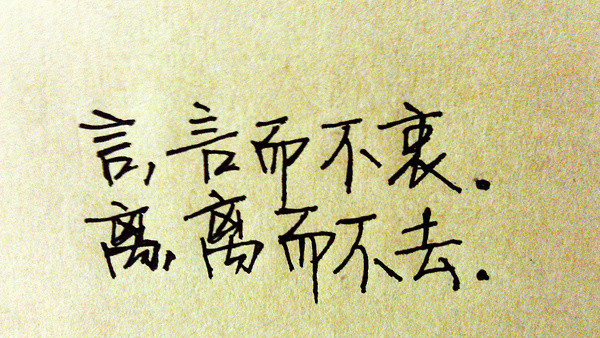 言,言而不衷.
离,离而不去.